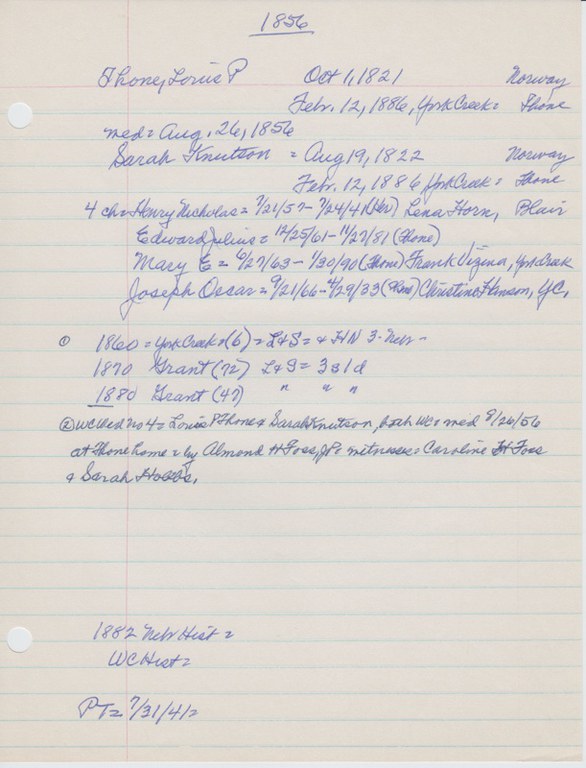 1856
Thone, Louis P Oct 1, 1821 Norway
Febr. 12, 1886, York Creek = Thone
med = Aug. 26, 1856
Sarah Knutson = Aug 19, 1822 Norway
Febr. 12, 1886 York Creek = Thone
4 ch = Henry Nicholas = 7/21/57 - 7/24/41 Lena Horn, Blair
Edward Julius = 12/25/61 - 11/27/81 (Thone)
Mary E = 6/27/63 - 1/30/90 (Thone) Frank Vizina, York Creek
Joseph Oscar = 9/21/66 - 4/29/33 Christine Hanson, YC,
① 1860 = York Creek = (6) = L & S = & HN 3 - Nebr -
1870 Grant (72) L & S = 3 s 1 d
1880 Grant (47) " " "
② WC Wed No 4 = Louis P Thone & Sarah Knutson, both WC = med 8/26/56
at Thone home = by Almond H Foss, JP = witnesses = Caroline H Foss
& Sarah Hobbs,
1882 Nebr Hist =
WC Hist =
PT = 7/31/41 =